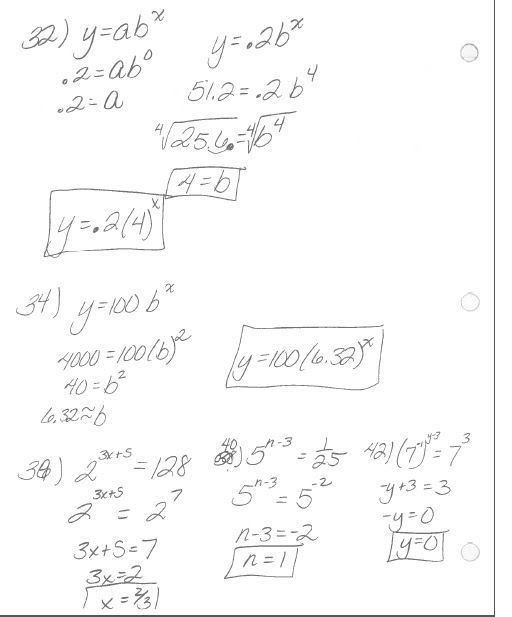 32) y=ab^x
.2=ab^0
.2=a
y=.2b^x
51.2=.2b^4
∜25.6.=∜b^4
4=b
y=.2(4)^x
34) y=100b^x
4000=100(b)^2
40=b^2
6.32≈b
y=100(6.32)^x
36) 2^{3x+5}=128
2^{3x+5}=2^7
3x+5=7
3x=2
x=2/3
40) 5^{n-3}=1/25
5^{n-3}=5^{-2}
n-3=-2
n=1
42) (7^{-1})^{y-3}=7^3
-y+3=3
-y=0
y=0